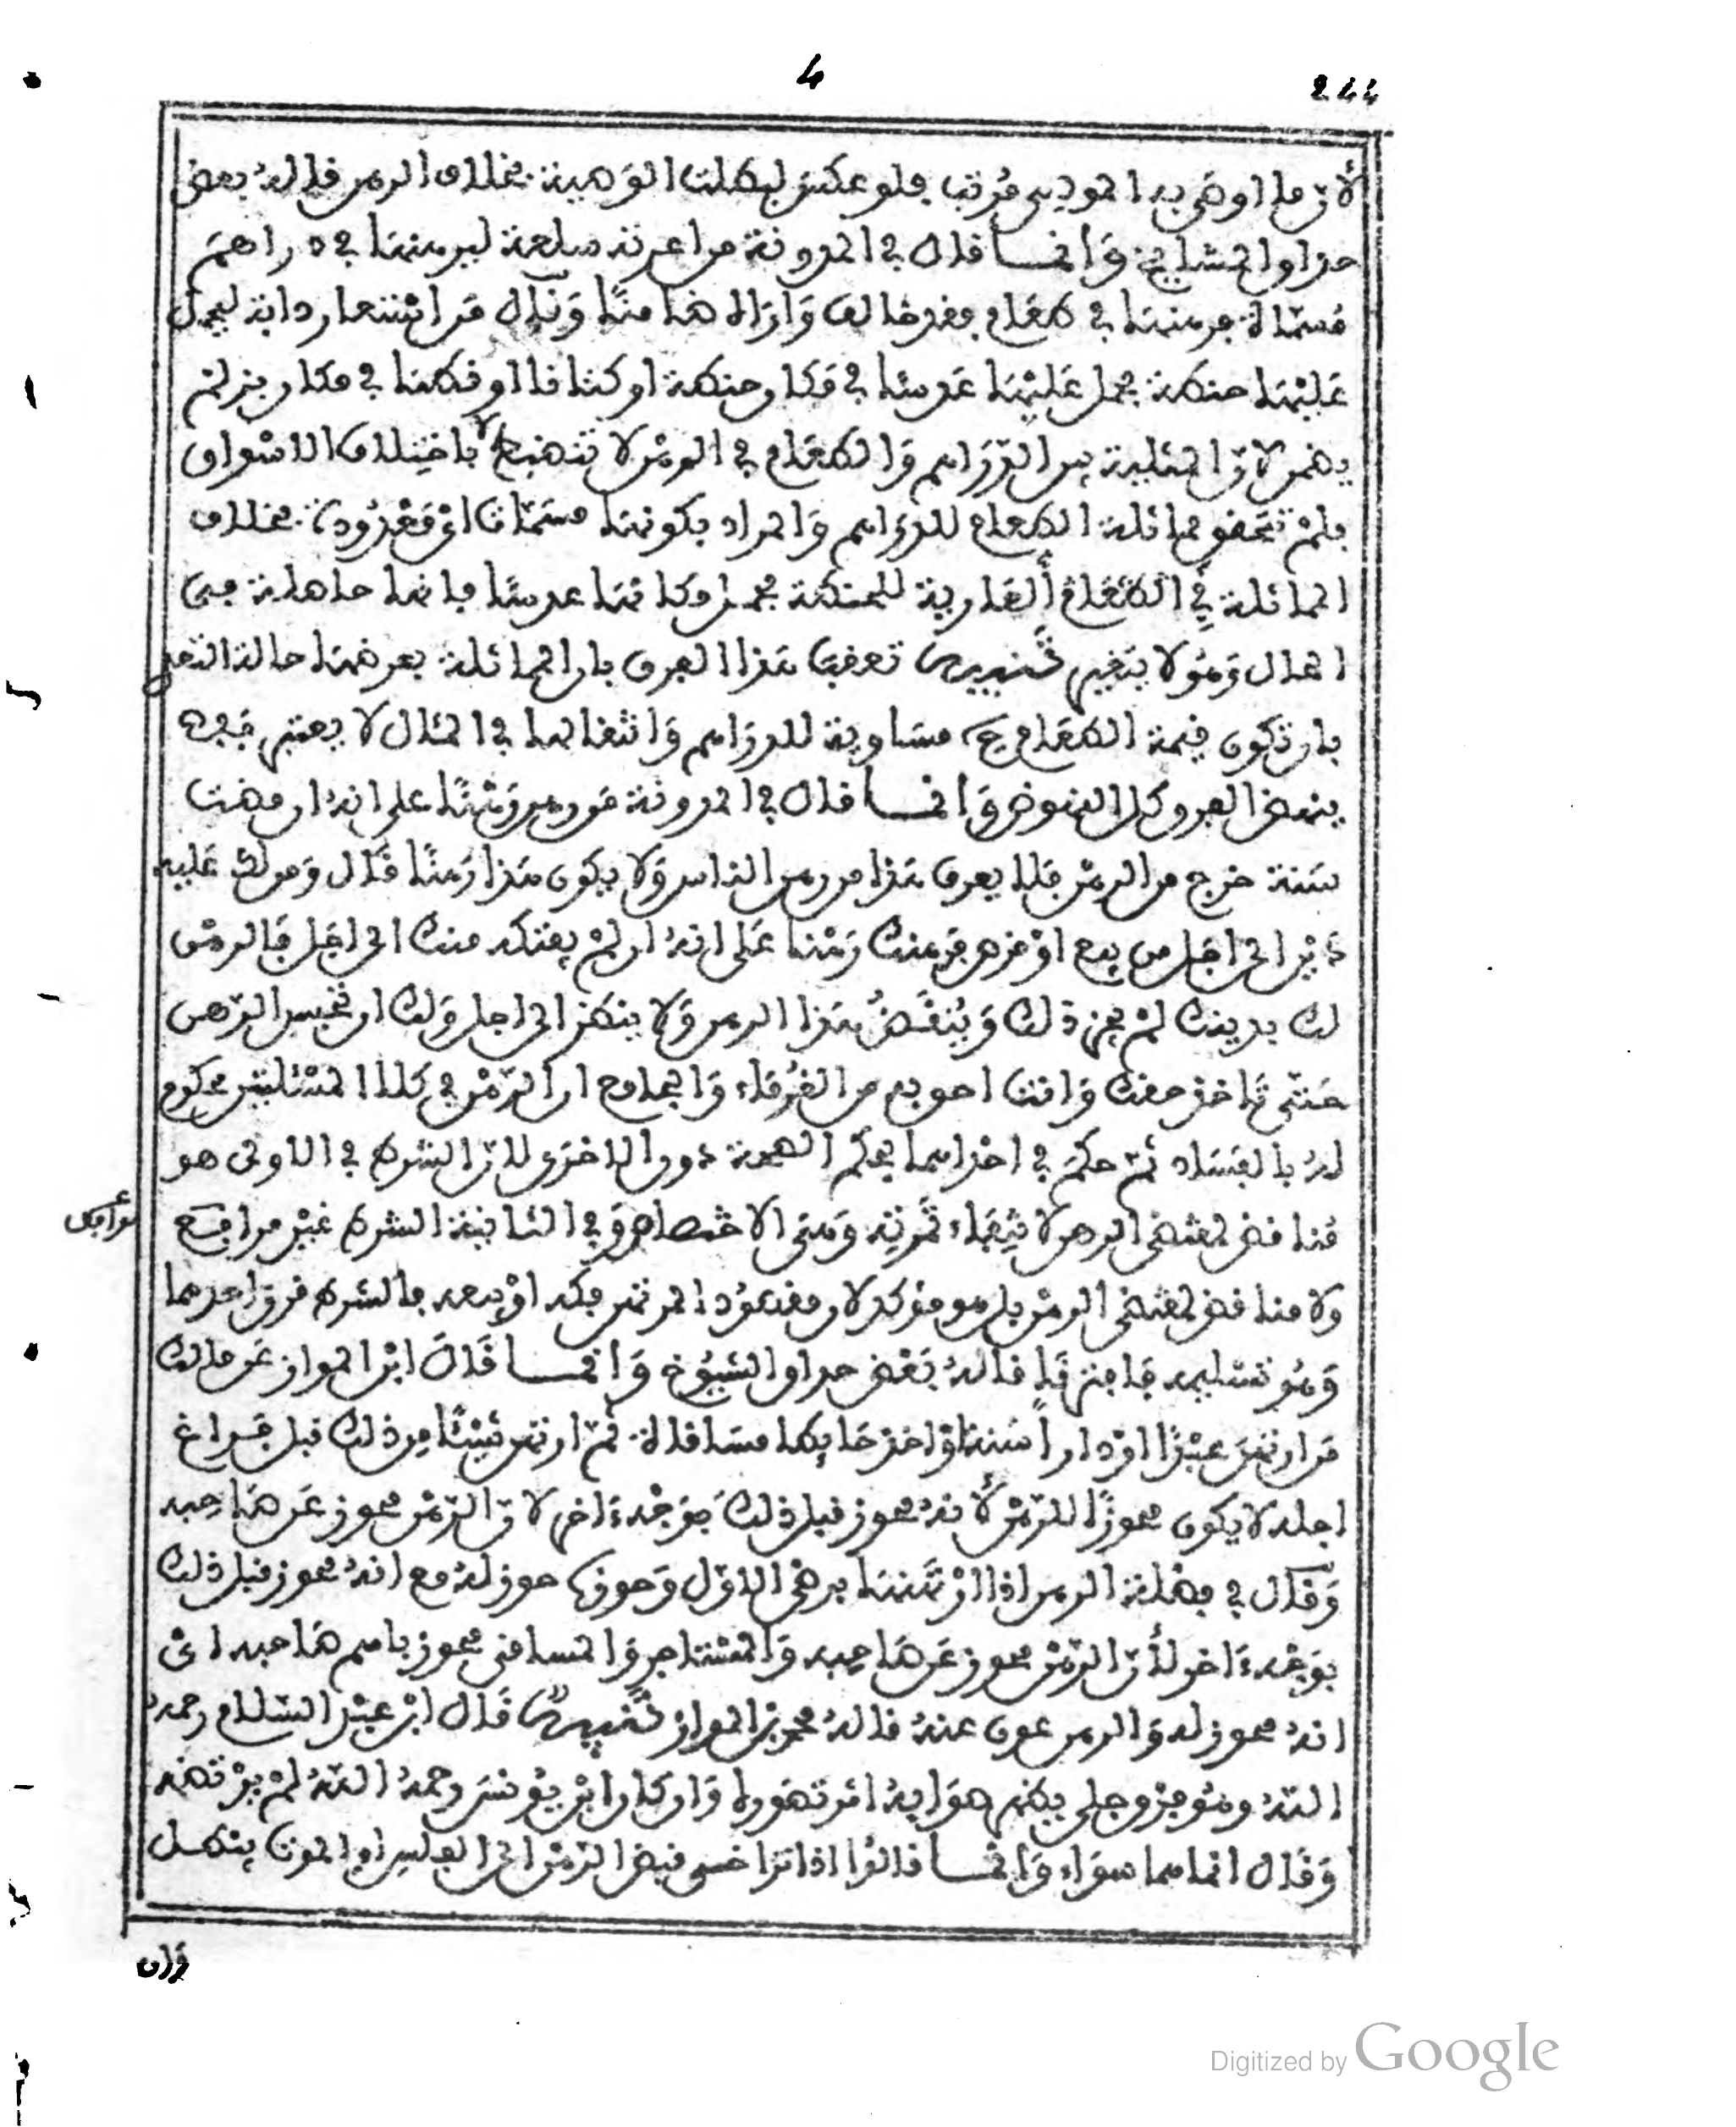 244
4
لأن ما اوصى به المودى مرتب فلو عكس لبطلت الوصية بخلاف الرهن قاله بعض
حذاق المشايخ وانما قال في المدونة من اعرته سلعة ليرهنها في دراهم
مسماة فرهنها في طعام فقد خالف واراه ضامنا وقال من استعار دابة ليحمل
عليها حنطة فحمل عليها عدسا في مكان حنطة او كتانا او قطنا في مكان بز لم
يضمن لان المثلية بين الدراهم والطعام في الرهن لا تنضبط لاختلاف الاسواق
فلم تتحقق مماثلة الطعام للدراهم والمراد بكونها مسماة اي معدودة بخلاف
المماثلة في الطعام العارية للحنطة يحمل مكانها عدسا فانها حاصلة في
الحال وهو لا يتغير تنبيه تعقب هذا الفرق بان المماثلة بعرضها حالة التعدي
بان تكون قيمة الطعام ح مساوية للدراهم وانتقالها في المثال لا يعتبر فيه
ينقض الفرق كل النقوض وانما قال في المدونة من رهن رهنا على انه ان مضت
سنة خرج من الرهن فلا يعرف هذا من رهن الناس ولا يكون هذا رهنا قال ومن لك عليه
دين الى اجل من بيع او قرض فرهنك رهنا على انه ان لم يفتكه منك الى اجل فالرهن
لك بدينك لم يجز ذلك وينقض هذا الرهن ولا ينتظر الى اجل ولك ان تحبس الرهن
حتى تاخذ حقك وانت احق به من الغرماء والجامع ان الرهن في كلا المسئلتين محكوم
له بالفساد ثم حكم في احداهما بحكم الصحة دون الاخرى لان الشرط في الاولى هو
مناقض لمقتضى الرهن لانتفاء ثمرته وهي الاختصاص وفي الثانية الشرط غير مرافع
ولا مناقض لمقتضى الرهن بل هو مؤكد لان مقصود المرتهن فكه او بيعه فالشرط قرر احدهما
وهو تسليمه فافترقا قاله بعض حذاق الشيوخ وانما قال ابن المواز عن مالك
من ارتهن عبدا او دارا سنة واخذ حايطا مساقاة ثم ارتهن شيئا من ذلك قبل فراغ
اجله لا يكون محوزا للرهن لأنه محوز قبل ذلك بوجه اخر لان الرهن محوز عن صاحبه
وقال في فضلة الرهن اذا ارتهنها برضى الاول وحوزها حوز له مع انه محوز قبل ذلك
بوجه اخر لأن الرهن محوز عن صاحبه والمستاجر والمساقى محوز باسم صاحبه اي
انه محوز له والرهن محوز عنه قاله محمد بن المواز تنبيه قال ابن عبد السلام رحمه
الله وهو فرق جلي يظهر صوابه اثر تصوره وان كان ابن يونس رحمه الله لم يرتضه
وقال انما هما سواء وانما قالوا اذا تراخى قبض الرهن الى الفلس او الموت يبطل
وان